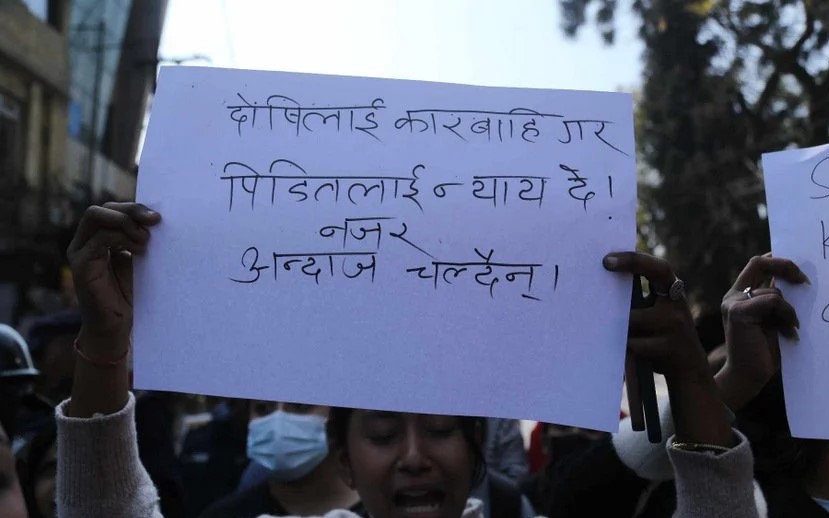 दोषिलाई कारबाहि गर
पिडितलाई न्याय दे!
नजर
अन्दाज चल्दैन्।